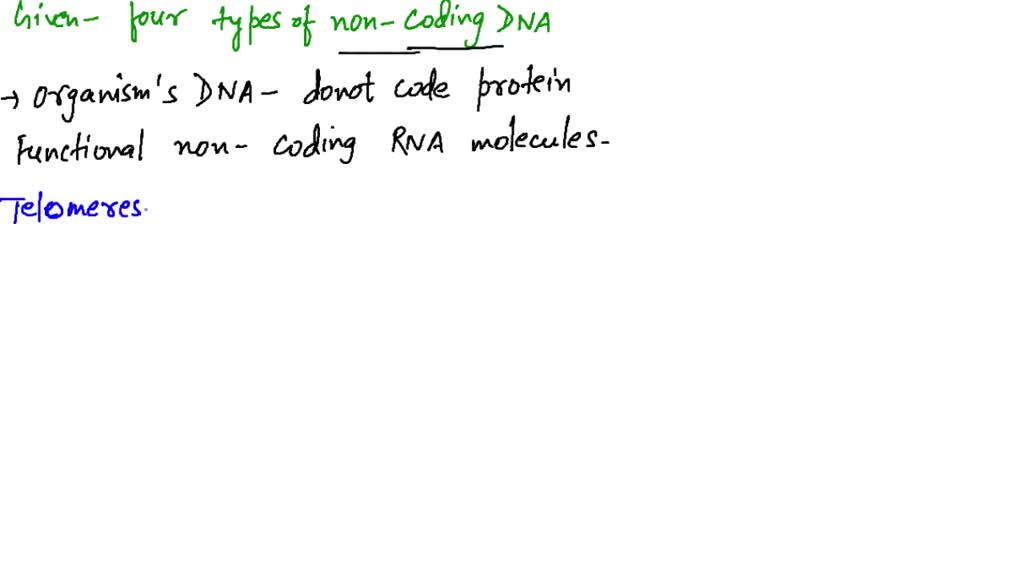 Given- four types of non-coding DNA
→ Organism's DNA - donot code protein
Functional non- coding RNA molecules-
Telomeres.